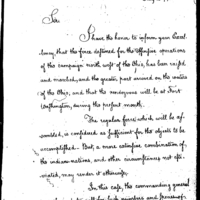 Sir
I have the honor to inform your Excel-
lency, that the force destined for the offensive operations
of the campaign north west of the Ohio, has been raised
and marched, and the greater part arrived on the waters
of the Ohio, and that the rendezvous will be at Fort
Washington, during the present month.
The regular force which will be as-
sembled, is considered as sufficient for the objects to be
accomplished. But, a more extensive combination of
the indian nations, and other circumstances not esti-
mated, may render it otherwise.
In this case, the commanding general